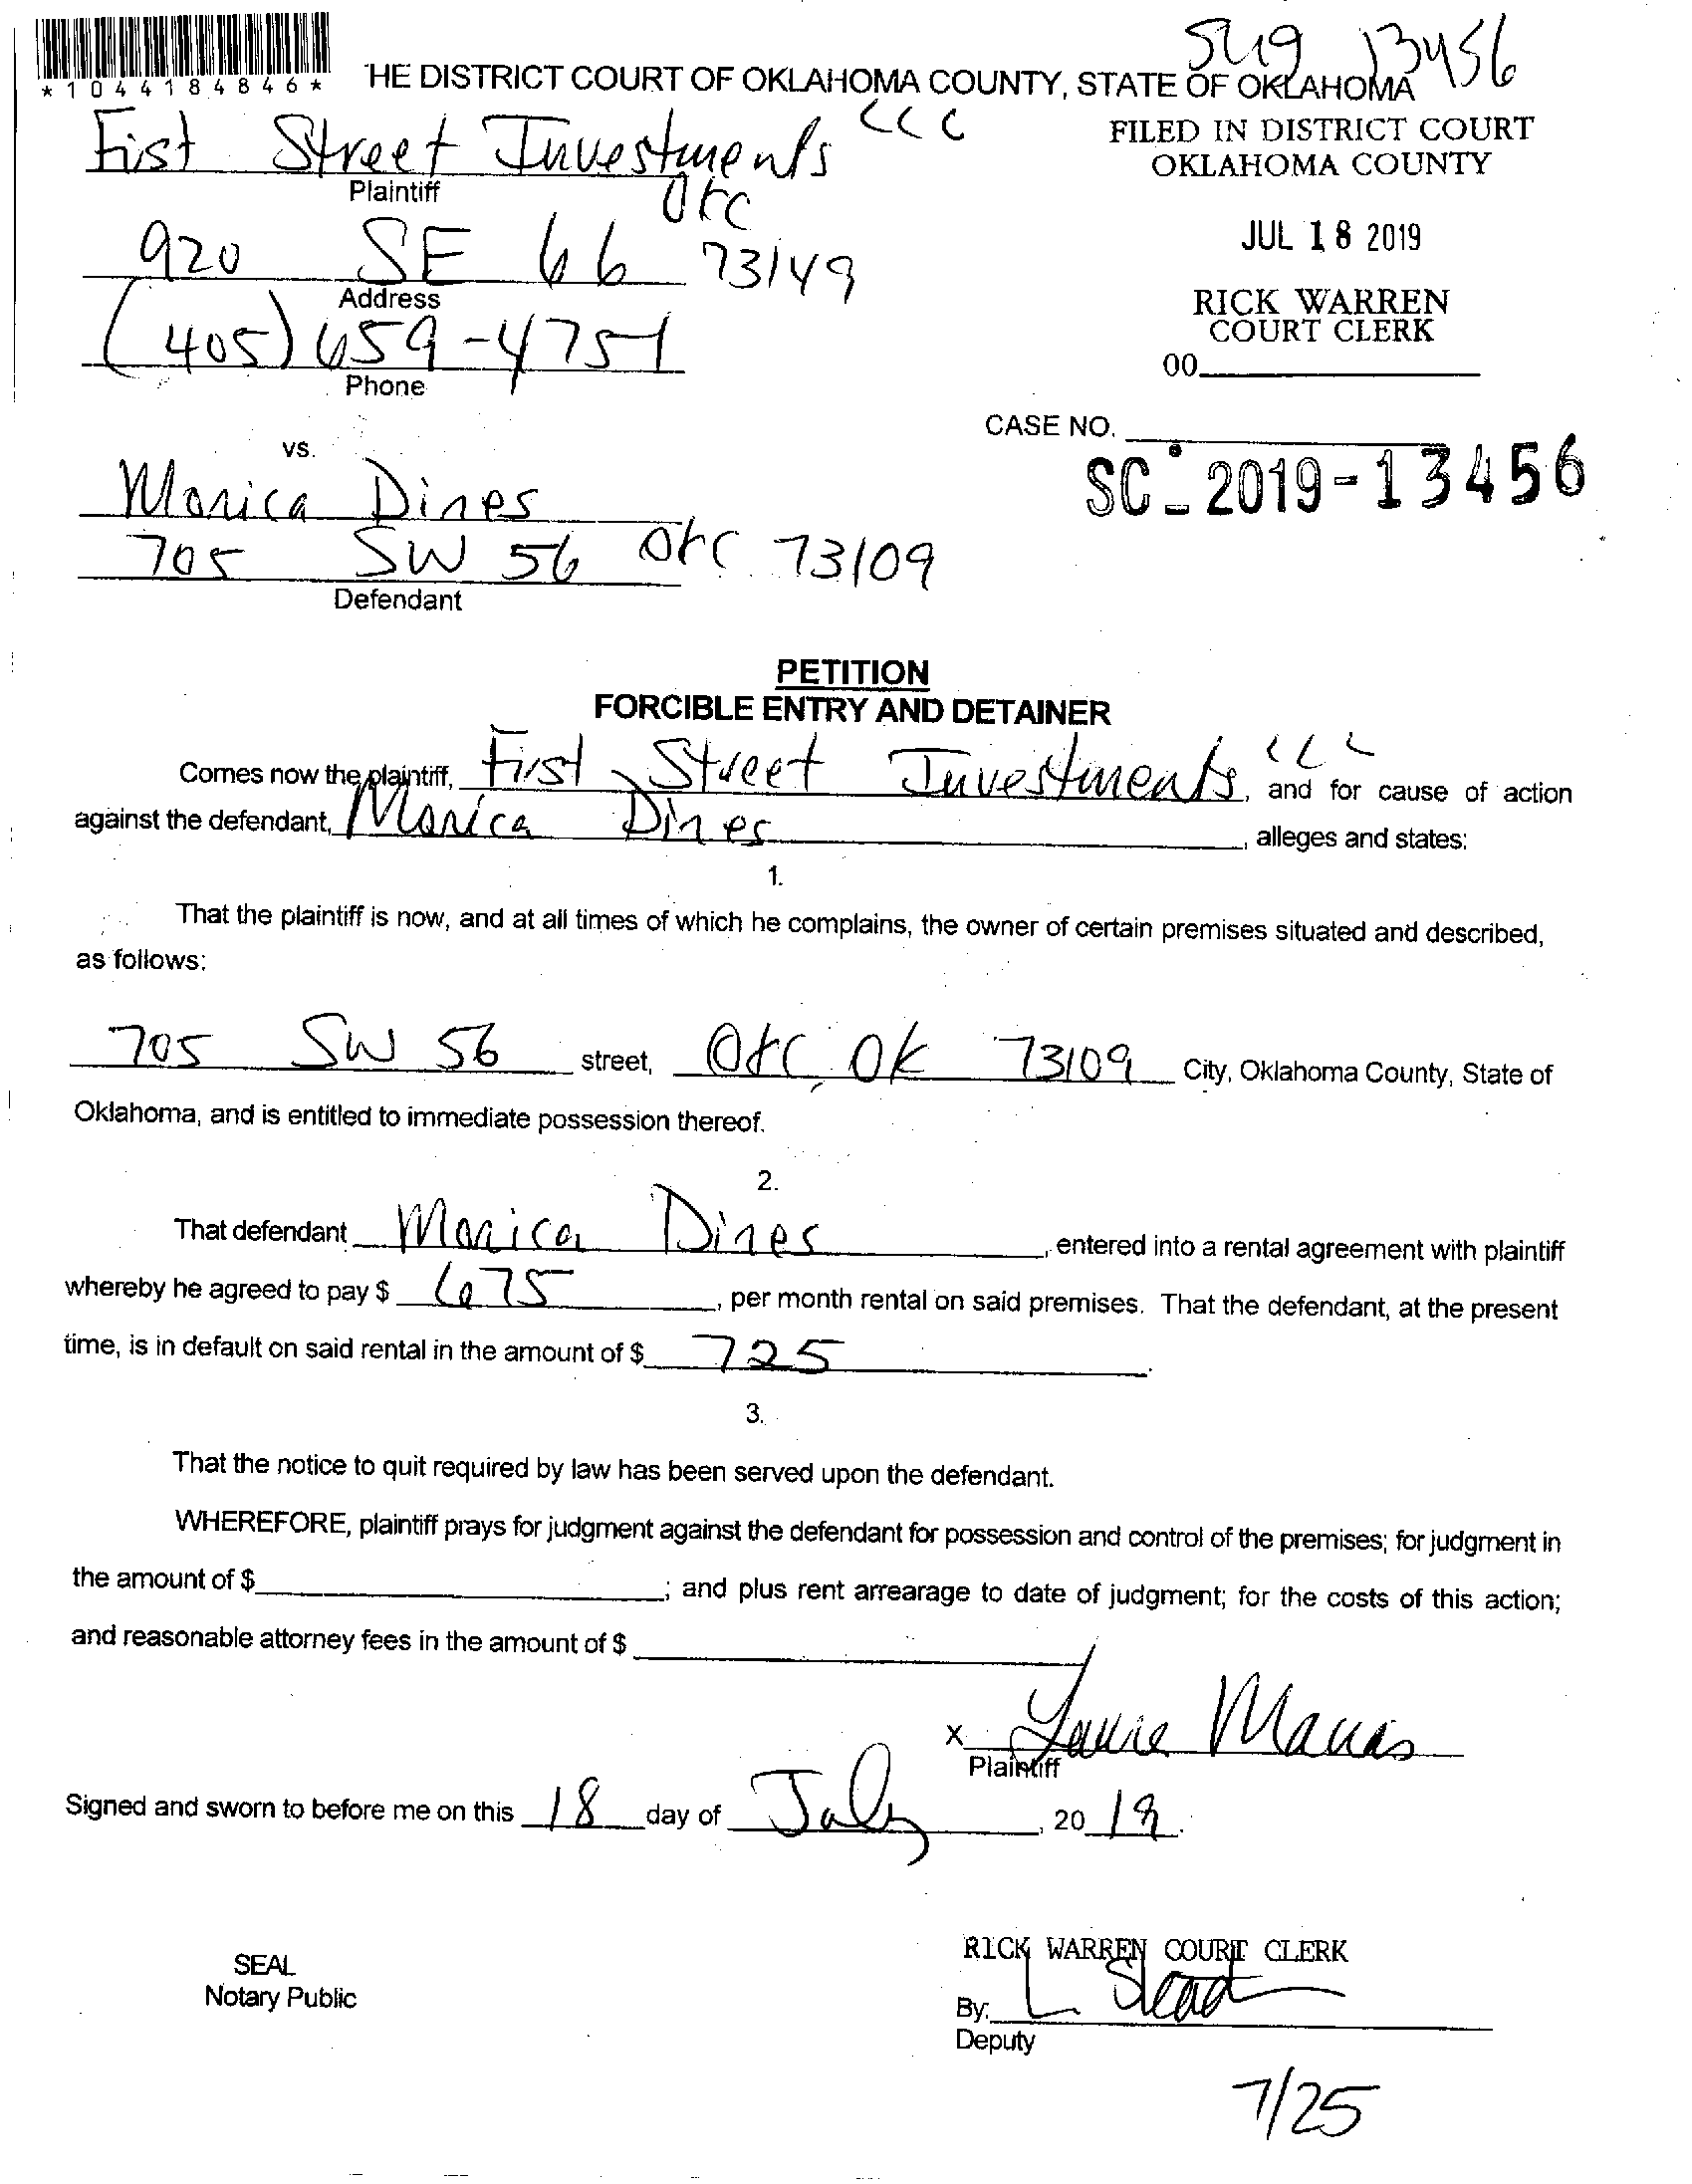 SC19 13456
*1044184846*
HE DISTRICT COURT OF OKLAHOMA COUNTY, STATE OF OKLAHOMA
Fist Street Investments LLC
Plaintiff
OKC
920 SE 66 73149
Address
(405) 659-4751
Phone
FILED IN DISTRICT COURT
OKLAHOMA COUNTY
JUL 18 2019
RICK WARREN
COURT CLERK
00
CASE NO.
SC - 2019-13456
vs.
Monica Dines
705 SW 56 OKC 73109
Defendant
PETITION
FORCIBLE ENTRY AND DETAINER
Comes now the plaintiff, First Street Investments LLC, and for cause of action
against the defendant, Monica Dines, alleges and states:
1.
That the plaintiff is now, and at all times of which he complains, the owner of certain premises situated and described,
as follows:
705 SW 56 street, OKC OK 73109 City, Oklahoma County, State of
Oklahoma, and is entitled to immediate possession thereof.
2.
That defendant Monica Dines, entered into a rental agreement with plaintiff
whereby he agreed to pay $ 675, per month rental on said premises. That the defendant, at the present
time, is in default on said rental in the amount of $ 725.
3.
That the notice to quit required by law has been served upon the defendant.
WHEREFORE, plaintiff prays for judgment against the defendant for possession and control of the premises; for judgment in
the amount of $ ; and plus rent arrearage to date of judgment; for the costs of this action;
and reasonable attorney fees in the amount of $
X
Plaintiff
Signed and sworn to before me on this 18 day of July, 20 19.
SEAL
Notary Public
RICK WARREN COURT CLERK
By:
Deputy
7/25